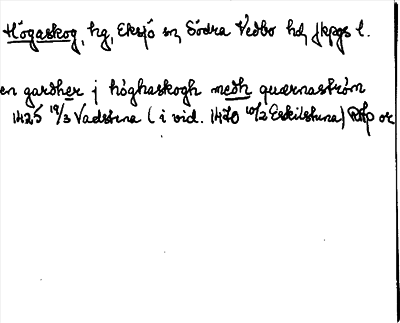 Högaskog, hg, Eksjö sn, Södra Vedbo hd, Jkpgs l.
en gardher j höghaskogh medh quærnaström
1425 19/3 Vadstena (i vid. 1470 10/2 Eskilstuna) RAp or